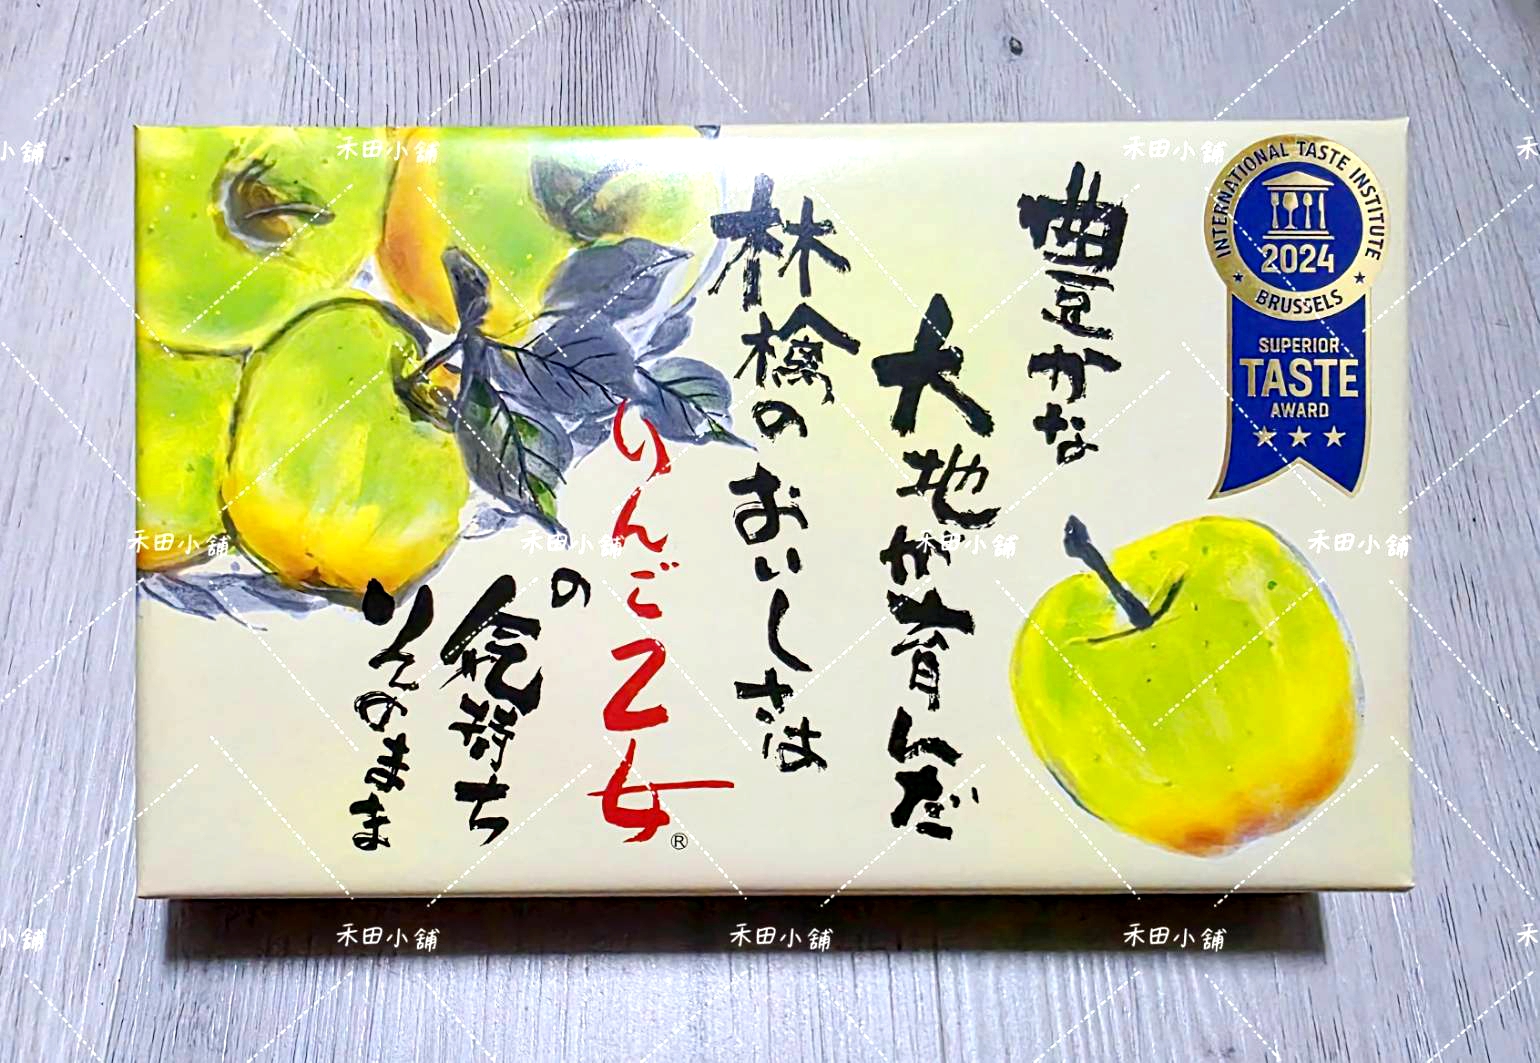 豊かな
大地が育んだ
林檎のおいしさは
りんご乙女®
の
気持ち
そのまま
INTERNATIONAL TASTE INSTITUTE
2024
BRUSSELS
SUPERIOR
TASTE
AWARD
禾田小舖
禾田小舖
禾田小舖
禾田小舖
禾田小舖
禾田小舖
禾田小舖
禾田小舖
禾田小舖
小舖
小舖
禾
禾